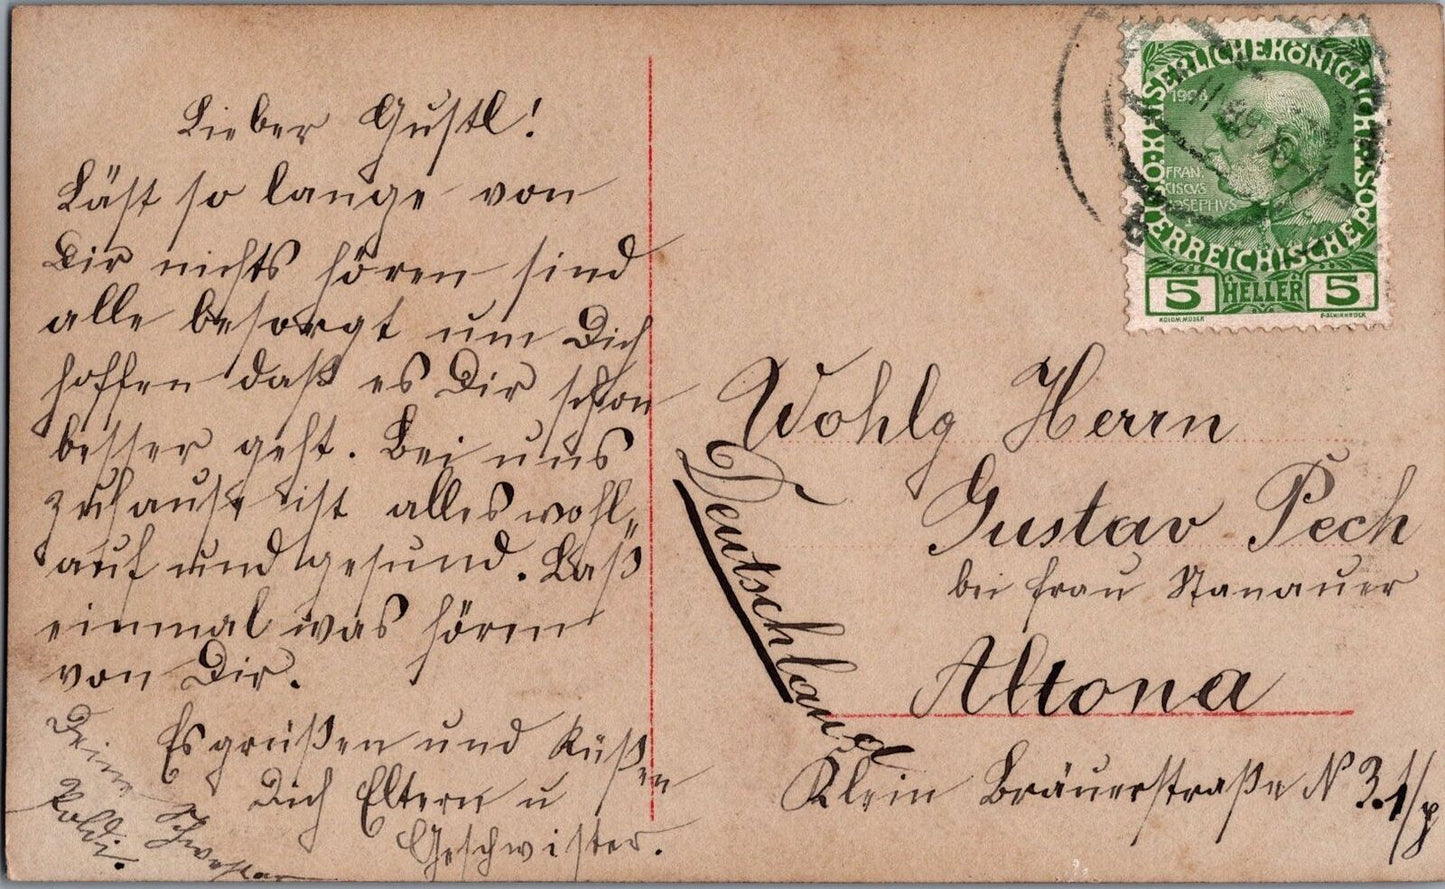 Lieber Gustl!
Läst so lange von
Dir nichts hören sind
alle besorgt um Dich
hoffen daß es Dir schon
besser geht. Bei uns
zuhause ist alles wohl„
auf und gesund. Laß
einmal was hören
von Dir.
Es grüßen und küßen
Dich Eltern u
Geschwister.
Deine Schwester
Poldi.
1908
FRAN.
CISCVS
IOSEPHVS
KAISERLICHE KÖNIGLICHE
ÖSTERREICHISCHE POST
5 HELLER 5
KOLOM. MOSER
Wohlg Herrn
Gustav Pech
bei Frau Stanauer
Altona
Klein Bräuerstraße N 3.1/p
Deutschland